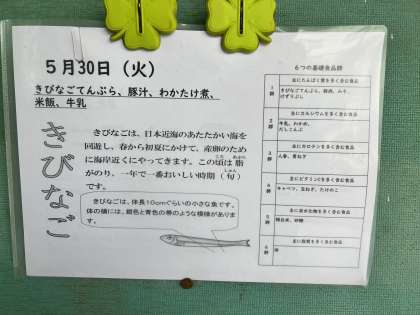 5月30日（火）
きびなごてんぷら、豚汁、わかたけ煮、
米飯、牛乳
きびなご
きびなごは、日本近海のあたたかい海を
回遊し、春から初夏にかけて、産卵のため
に海岸近くにやってきます。この頃は脂
がのり、一年で一番おいしい時期（旬）
です。
きびなごは、体長10cmぐらいの小さな魚です。
体の横には、銀色と青色の帯のような模様があり
ます。
6つの基礎食品群
1群
主にたんぱく質を多く含む食品
きびなごてんぷら、豚肉、みそ、
けずりぶし
2群
主にカルシウムを多く含む食品
牛乳、わかめ、
だしこんぶ
3群
主にカロテンを多く含む食品
人参、葉ねぎ
4群
主にビタミンCを多く含む食品
キャベツ、玉ねぎ、たけのこ
5群
主に炭水化物を多く含む食品
精白米、砂糖
6群
主に脂質を多く含む食品
油